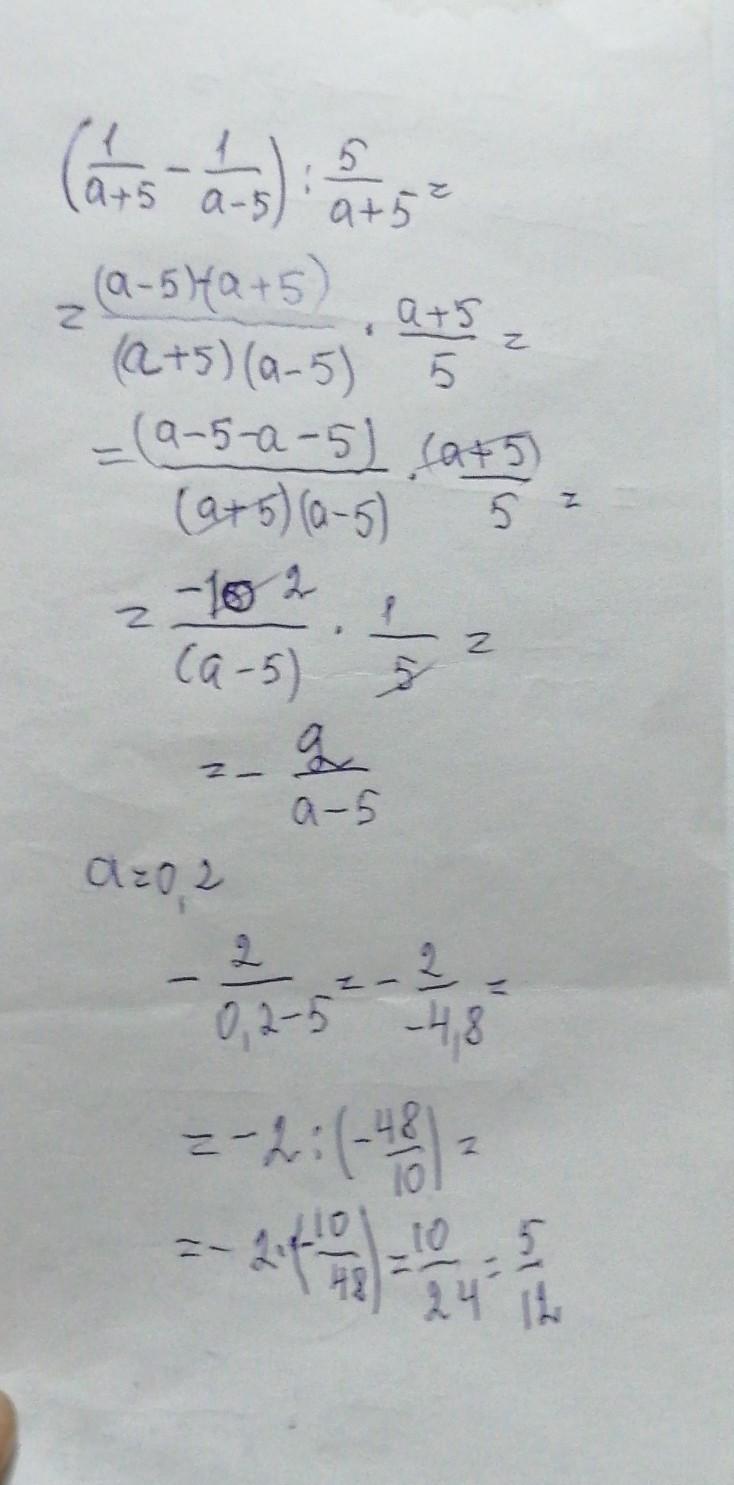 (1/(a+5) - 1/(a-5)) : 5/(a+5) =
= ((a-5)-(a+5))/((a+5)(a-5)) · (a+5)/5 =
= (a-5-a-5)/((a+5)(a-5)) · (a+5)/5 =
= -10 2/(a-5) · 1/5 =
= - 2/(a-5)
a=0,2
- 2/(0,2-5) = - 2/(-4,8) =
= -2 : (-48/10) =
= - 2 · (-10/48) = 10/24 = 5/12